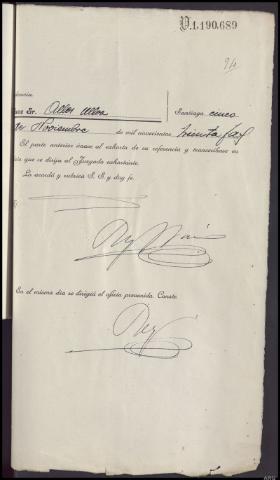 V.1.190.689
94
dencia
Juez Sr. Aller Ulloa Santiago cinco
de Noviembre de mil novecientos treinta y
El parte anterior únase al exhorto de su referencia y transcríbase en
oficio que se dirija al Juzgado exhortante.
Lo acordó y rubrica S. S. y doy fe.
En el mismo día se dirigió el oficio prevenido. Consta.
Rey